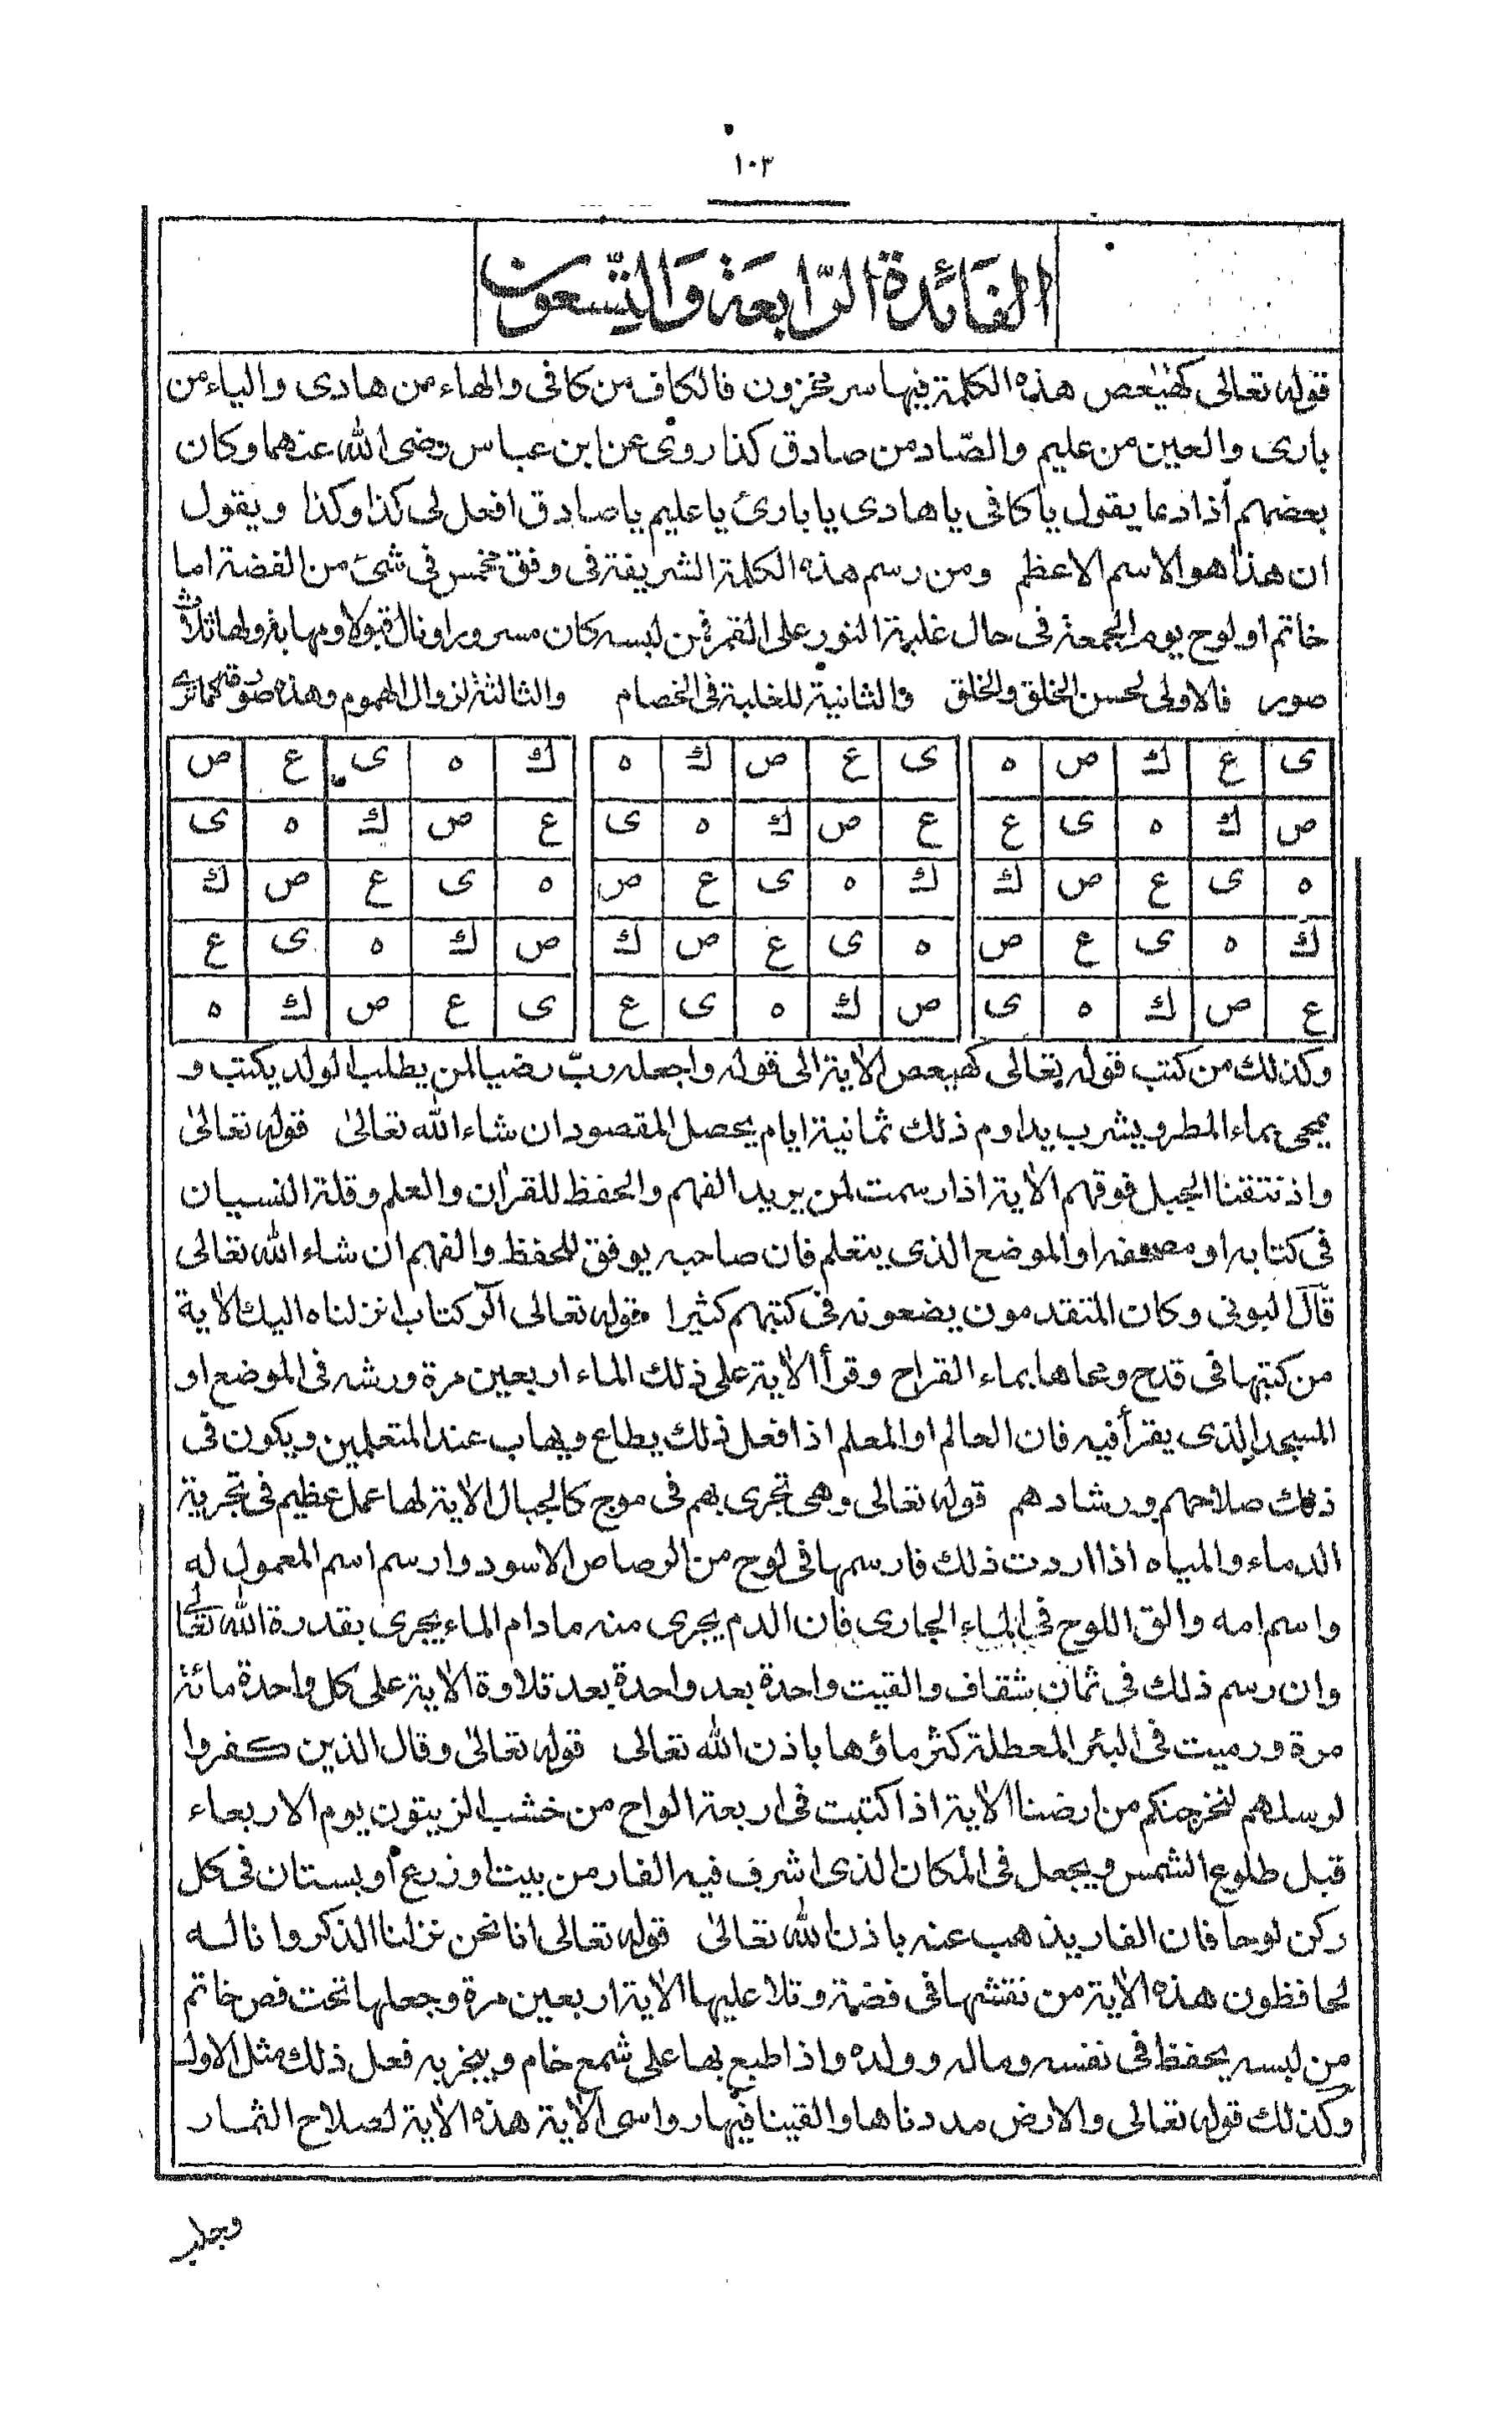 ١٠٣
الفَائدة الرّابعَة وَالتّسعون
قوله تعالى كهيعص هذه الكلمة فيها سر مخزون فالكاف من كافى والهاء من هادى والياء من
بارى والعين من عليم والصّاد من صادق كذا روى عن ابن عباس رضى الله عنهما وكان
بعضهم أذا دعا يقول يا كافى يا هادى يا بارئ يا عليم يا صادق افعل لى كذا وكذا ويقول
ان هذا هو الاسم الاعظم ومن رسم هذه الكلمة الشريفة فى وفق مخمس فى شئ من الفضة اما
خاتم او لوح يوم الجمعة فى حال غلبة النور على القمر فمن لبسه كان مسرورا ونال قبولا ومهابة ولها ثلاث
صور فالاولى لحسن الخلق والخلق والثانية للغلبة فى الخصام والثالثة لزوال الهموم وهذه صورتهم كما ترى
ى ع ك ص ه ى ع ص ك ه ك ه ى ع ص
ص ك ه ى ع ع ص ك ه ى ع ص ك ه ى
ه ى ع ص ك ك ه ى ع ص ه ى ع ص ك
ك ه ى ع ص ه ى ع ص ك ص ك ه ى ع
ع ص ك ه ى ص ك ه ى ع ى ع ص ك ه
وكذلك من كتب قوله تعالى كهيعص الاية الى قوله واجعله ربّ رضيا لمن يطلب الولد يكتب و
يمحى بماء المطر ويشرب يداوم ذلك ثمانية ايام يحصل المقصود ان شاء الله تعالىٰ قوله تعالىٰ
واذ نتقنا الجبل فوقهم الاية اذا رسمت لمن يريد الفهم والحفظ للقرٰان والعلم وقلة النسيان
فى كتابه او مصحفه او الموضع الذى يتعلم فان صاحبه يوفق للحفظ والفهم ان شاء الله تعالى
قال البونى وكان المتقدمون يضعونه فى كتبهم كثيرا قوله تعالى الٓر كتاب انزلناه اليك الاية
من كتبها فى قدح ومحاها بماء القراح وقرأ الاية على ذلك الماء اربعين مرة ورشه فى الموضع او
المسجد الذى يقرأ فيه فان العالم او المعلم اذا فعل ذلك يطاع ويهاب عند المتعلمين ويكون فى
ذلك صلاحهم ورشادهم قوله تعالى وهى تجرى بهم فى موج كالجبال الاية لها عمل عظيم فى تجرية
الدماء والمياه اذا اردت ذلك فارسمها فى لوح من الرصاص الاسود وارسم اسم المعمول له
واسم امه والق اللوح فى الماء الجارى فان الدم يجرى منه ما دام الماء يجرى بقدرة الله تعالى
وان رسم ذلك فى ثمان شقاف والقيت واحدة بعد واحدة بعد تلاوة الاية على كل واحدة مائة
مرة ورميت فى البئر المعطلة كثر ماؤها باذن الله تعالى قوله تعالىٰ وقال الذين كفروا
لرسلهم لنخرجنكم من ارضنا الاية اذا كتبت فى اربعة الواح من خشب الزيتون يوم الاربعاء
قبل طلوع الشمس ويجعل فى المكان الذى اشرف فيه الفار من بيت او زرع أو بستان فى كل
ركن لوحا فان الفار يذهب عنه باذن الله تعالىٰ قوله تعالى انا نحن نزلنا الذكر وانا له
لحافظون هذه الاية من نقشها فى فضة وتلا عليها الاية اربعين مرة وجعلها تحت فص خاتم
من لبسه يحفظ فى نفسه وماله وولده واذا طبع بها على شمع خام وبخر به فعل ذلك مثل الاول
وكذلك قوله تعالى والارض مددناها والقينا فيها رواسى الاية هذه الاية لصلاح الثمار